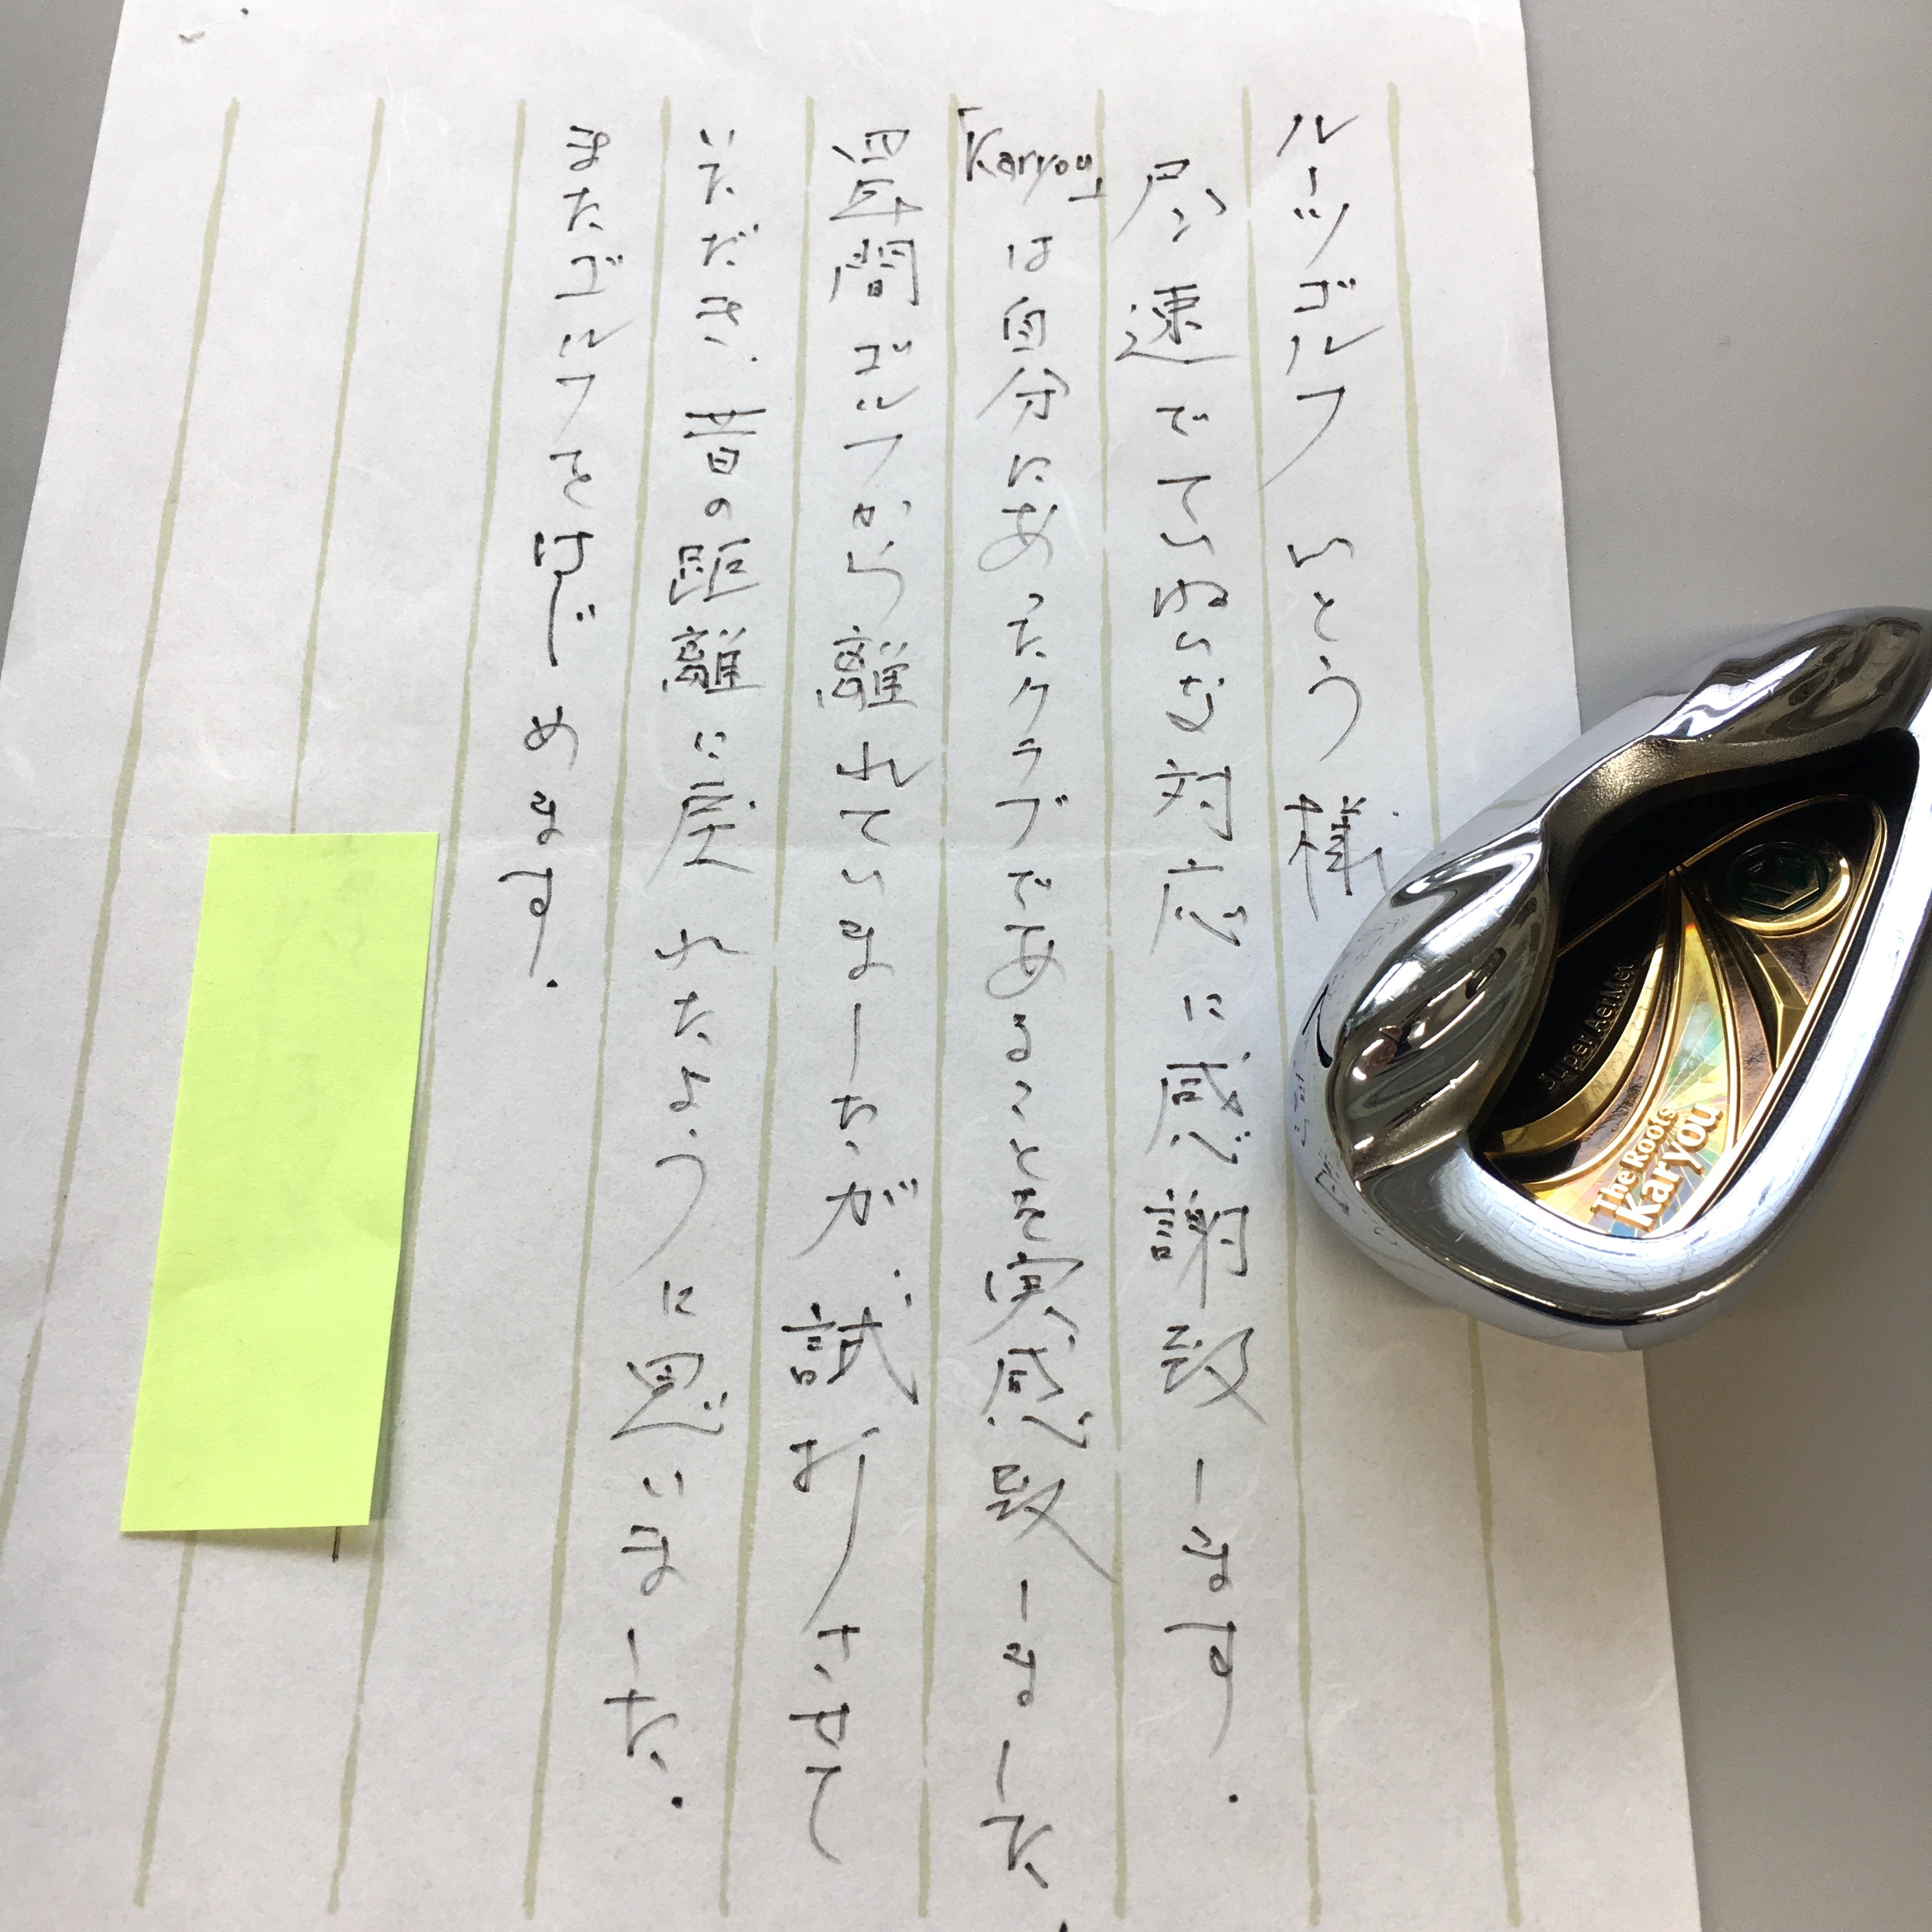 ルーツゴルフ いとう様
尽速でていねいな対応に感謝致します.
「Karyou」は自分にあったクラブであることを実感致しました
間ゴルフから離れていましたが、試打させて
いただき、昔の距離に戻れたように思いました.
またゴルフをはじめます.
Super AerMet
The Roots
Karyou